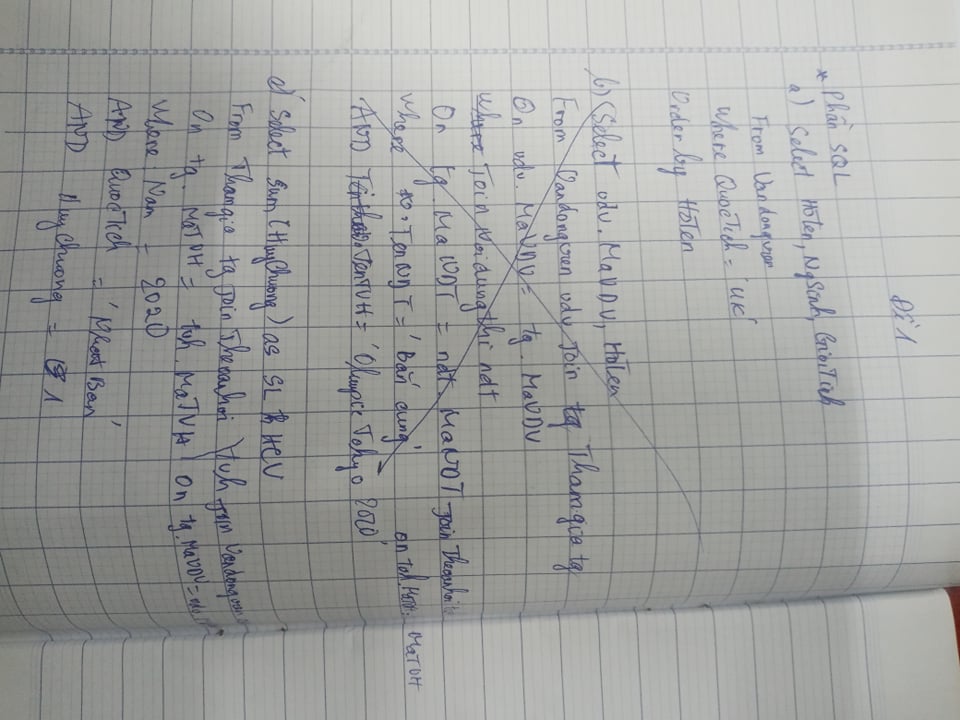 ĐỀ 1
* Phần SQL
a) Select HoTen, NgSinh, GioiTinh
From Vandongvien
Where QuocTich = 'UK'
Order by HoTen
b) (Select vdv. MaVDV, HoTen
From Vandongvien vdv Join tg Thamgia tg
On vdv. MaVDV = tg. MaVDV
Where Join Noidungthi ndt
On tg. MaNDT = ndt. MaNDT Join
Where TenNDT = 'Bắn cung' on MaTVH
AND TenTVH = 'Olympic Tokyo 2020'
c) Select sum (HuyChuong) as SL HCV
From Thamgia tg join Thevanhoi tvh join Vandongvien
On tg. MaTVH = tvh. MaTVH On tg. MaVDV =
Where Nam = 2020
AND QuocTich = 'Nhat Ban'
AND HuyChuong = 1